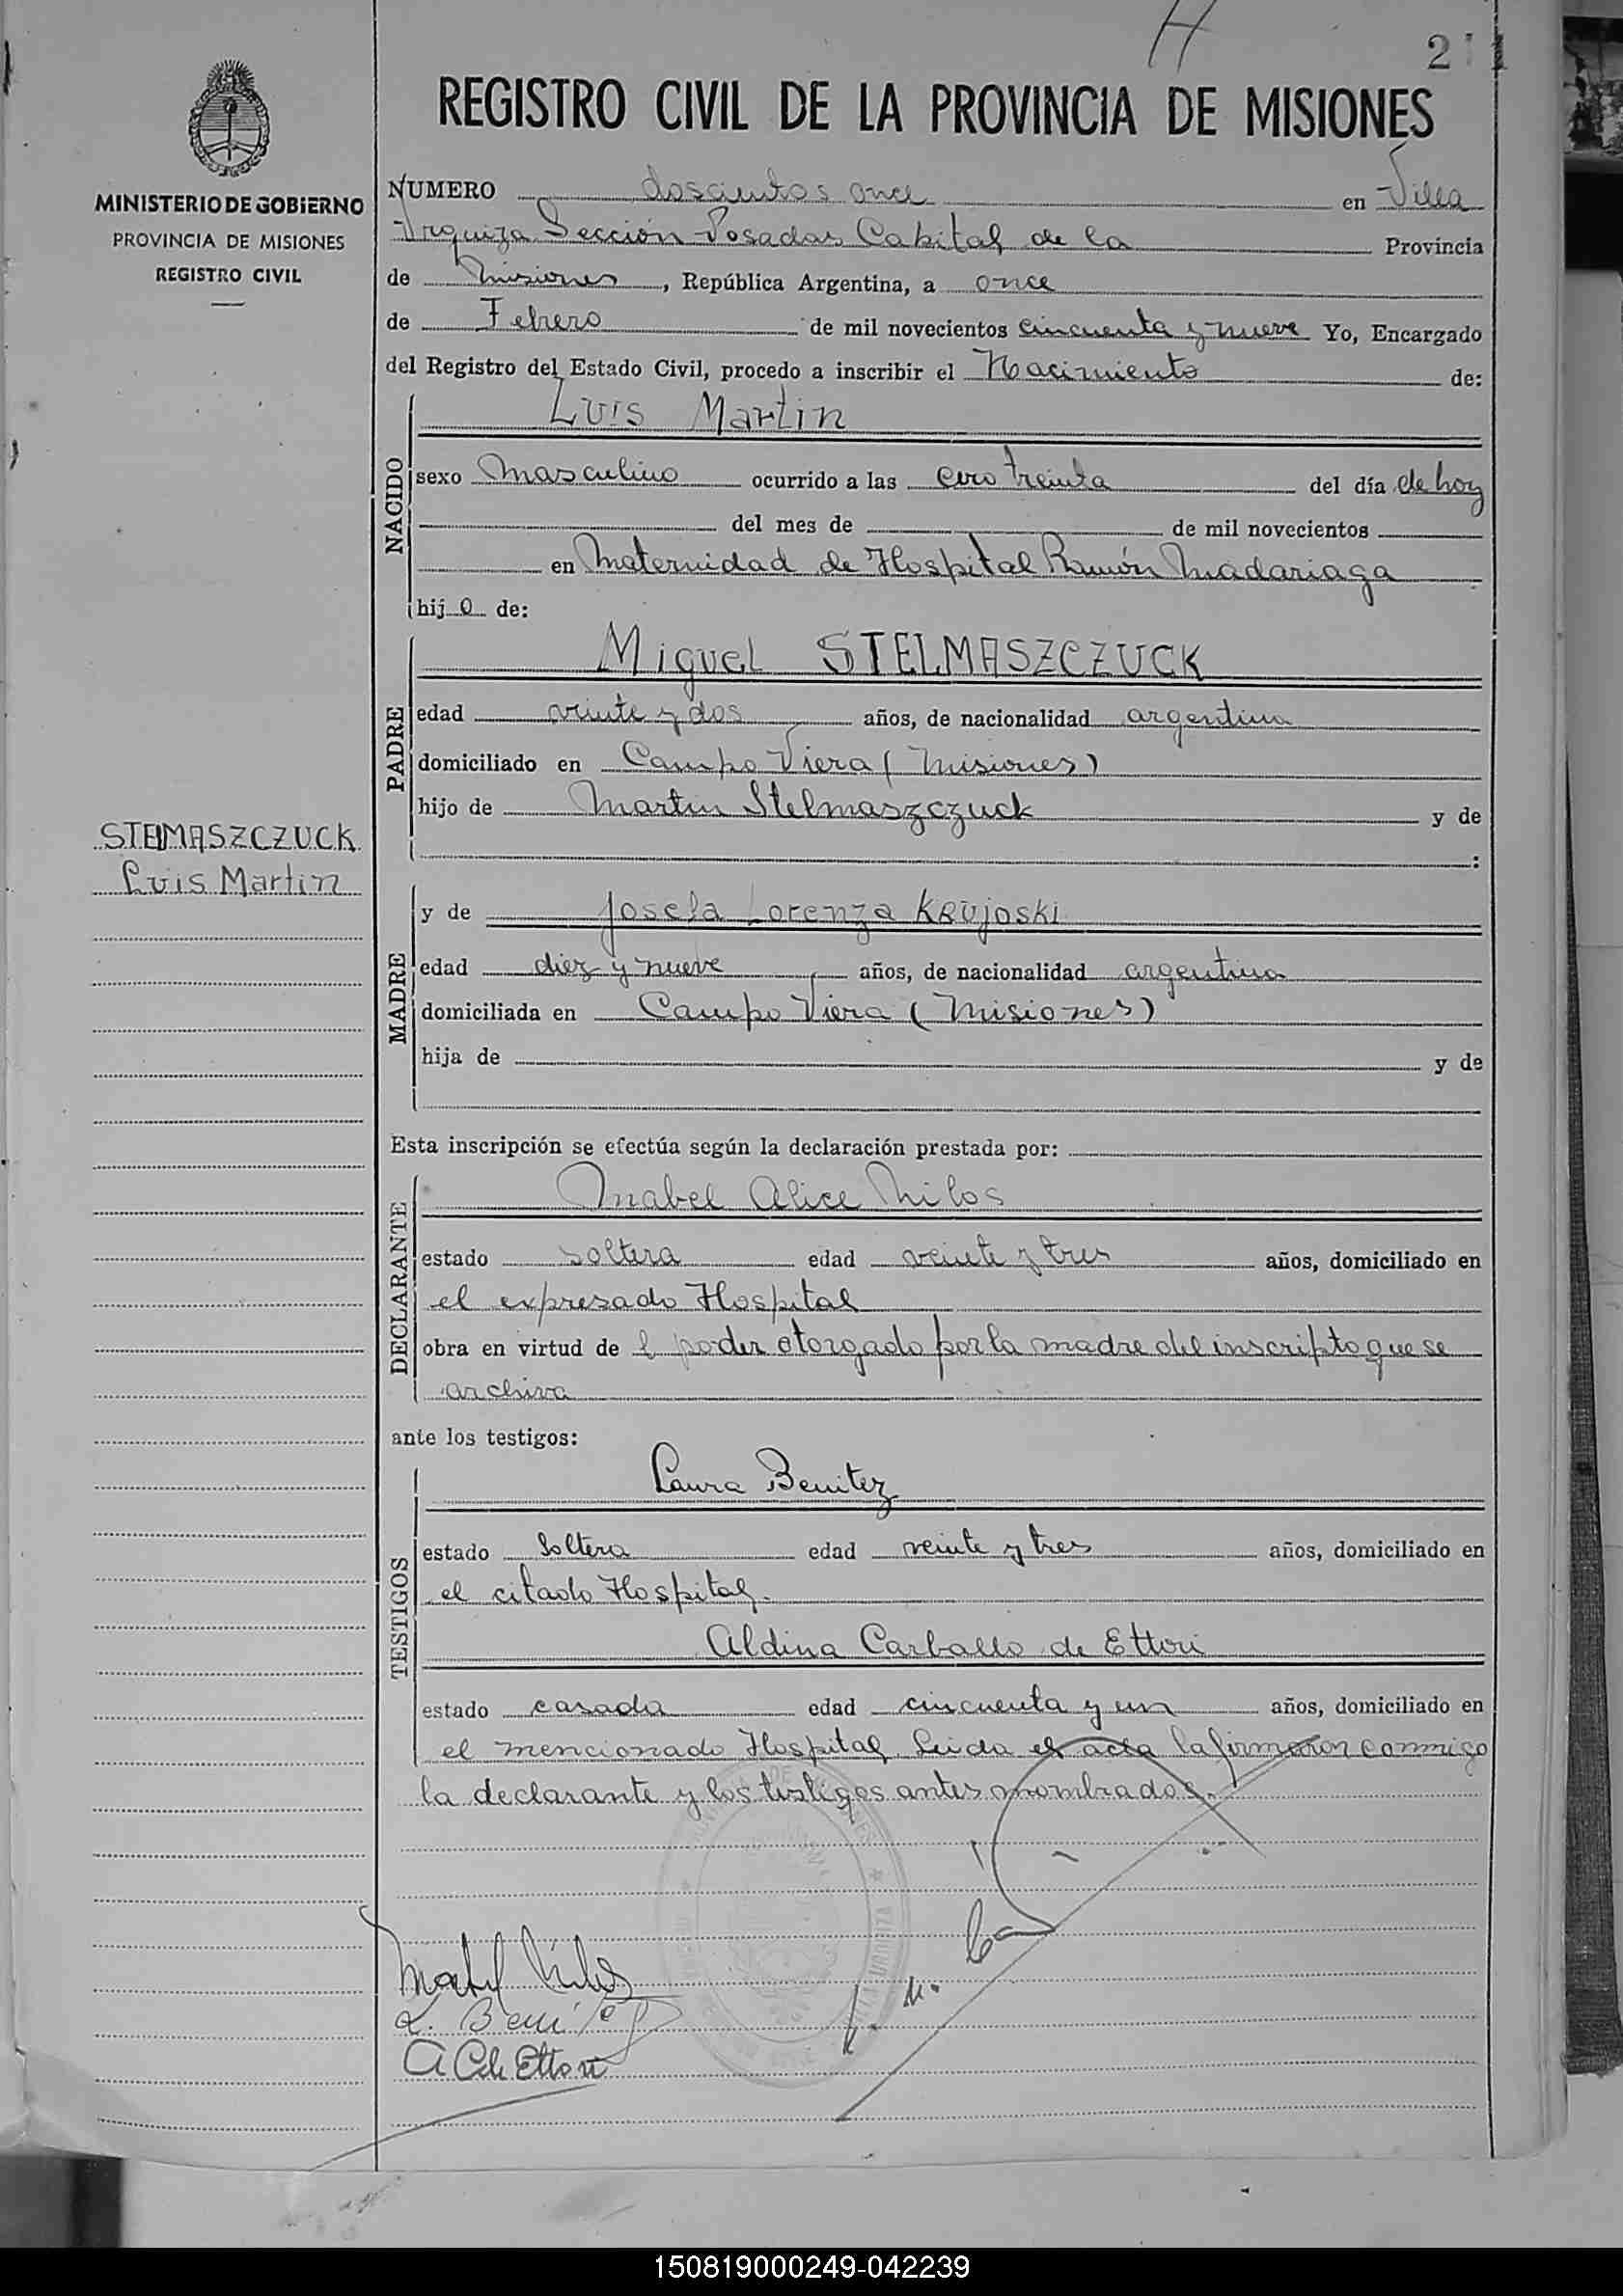 H
2
REGISTRO CIVIL DE LA PROVINCIA DE MISIONES
MINISTERIO DE GOBIERNO
PROVINCIA DE MISIONES
REGISTRO CIVIL
NUMERO doscientos once en Villa
Urquiza Sección Posadas Capital de la Provincia
de Misiones, República Argentina, a once
de Febrero de mil novecientos cincuenta y nueve Yo, Encargado
del Registro del Estado Civil, procedo a inscribir el Nacimiento de:
NACIDO
Luis Martin
sexo Masculino ocurrido a las cero treinta del día de hoy
del mes de de mil novecientos
en Maternidad de Hospital Ramón Madariaga
hijo de:
PADRE
Miguel STELMASZCZUCK
edad veinte y dos años, de nacionalidad argentina
domiciliado en Campo Viera (Misiones)
hijo de Martin Stelmaszczuck y de
:
STELMASZCZUCK
Luis Martin
MADRE
y de Josefa Lorenza KRUjOSKI
edad diez y nueve años, de nacionalidad argentina
domiciliada en Campo Viera (Misiones)
hija de y de
Esta inscripción se efectúa según la declaración prestada por:
DECLARANTE
Mabel Alice Milos
estado soltera edad veinte y tres años, domiciliado en
el expresado Hospital
obra en virtud de l poder otorgado por la madre del inscripto que se
archiva
ante los testigos:
TESTIGOS
Laura Benitez
estado Soltera edad veinte y tres años, domiciliado en
el citado Hospital.
Aldina Carballo de Ettori
estado casada edad cincuenta y un años, domiciliado en
el mencionado Hospital. Leida el acta la firmaron conmigo
la declarante y los testigos antes nombrados.
Mabel Milos
L. Benitez
A C de Ettori
150819000249-042239